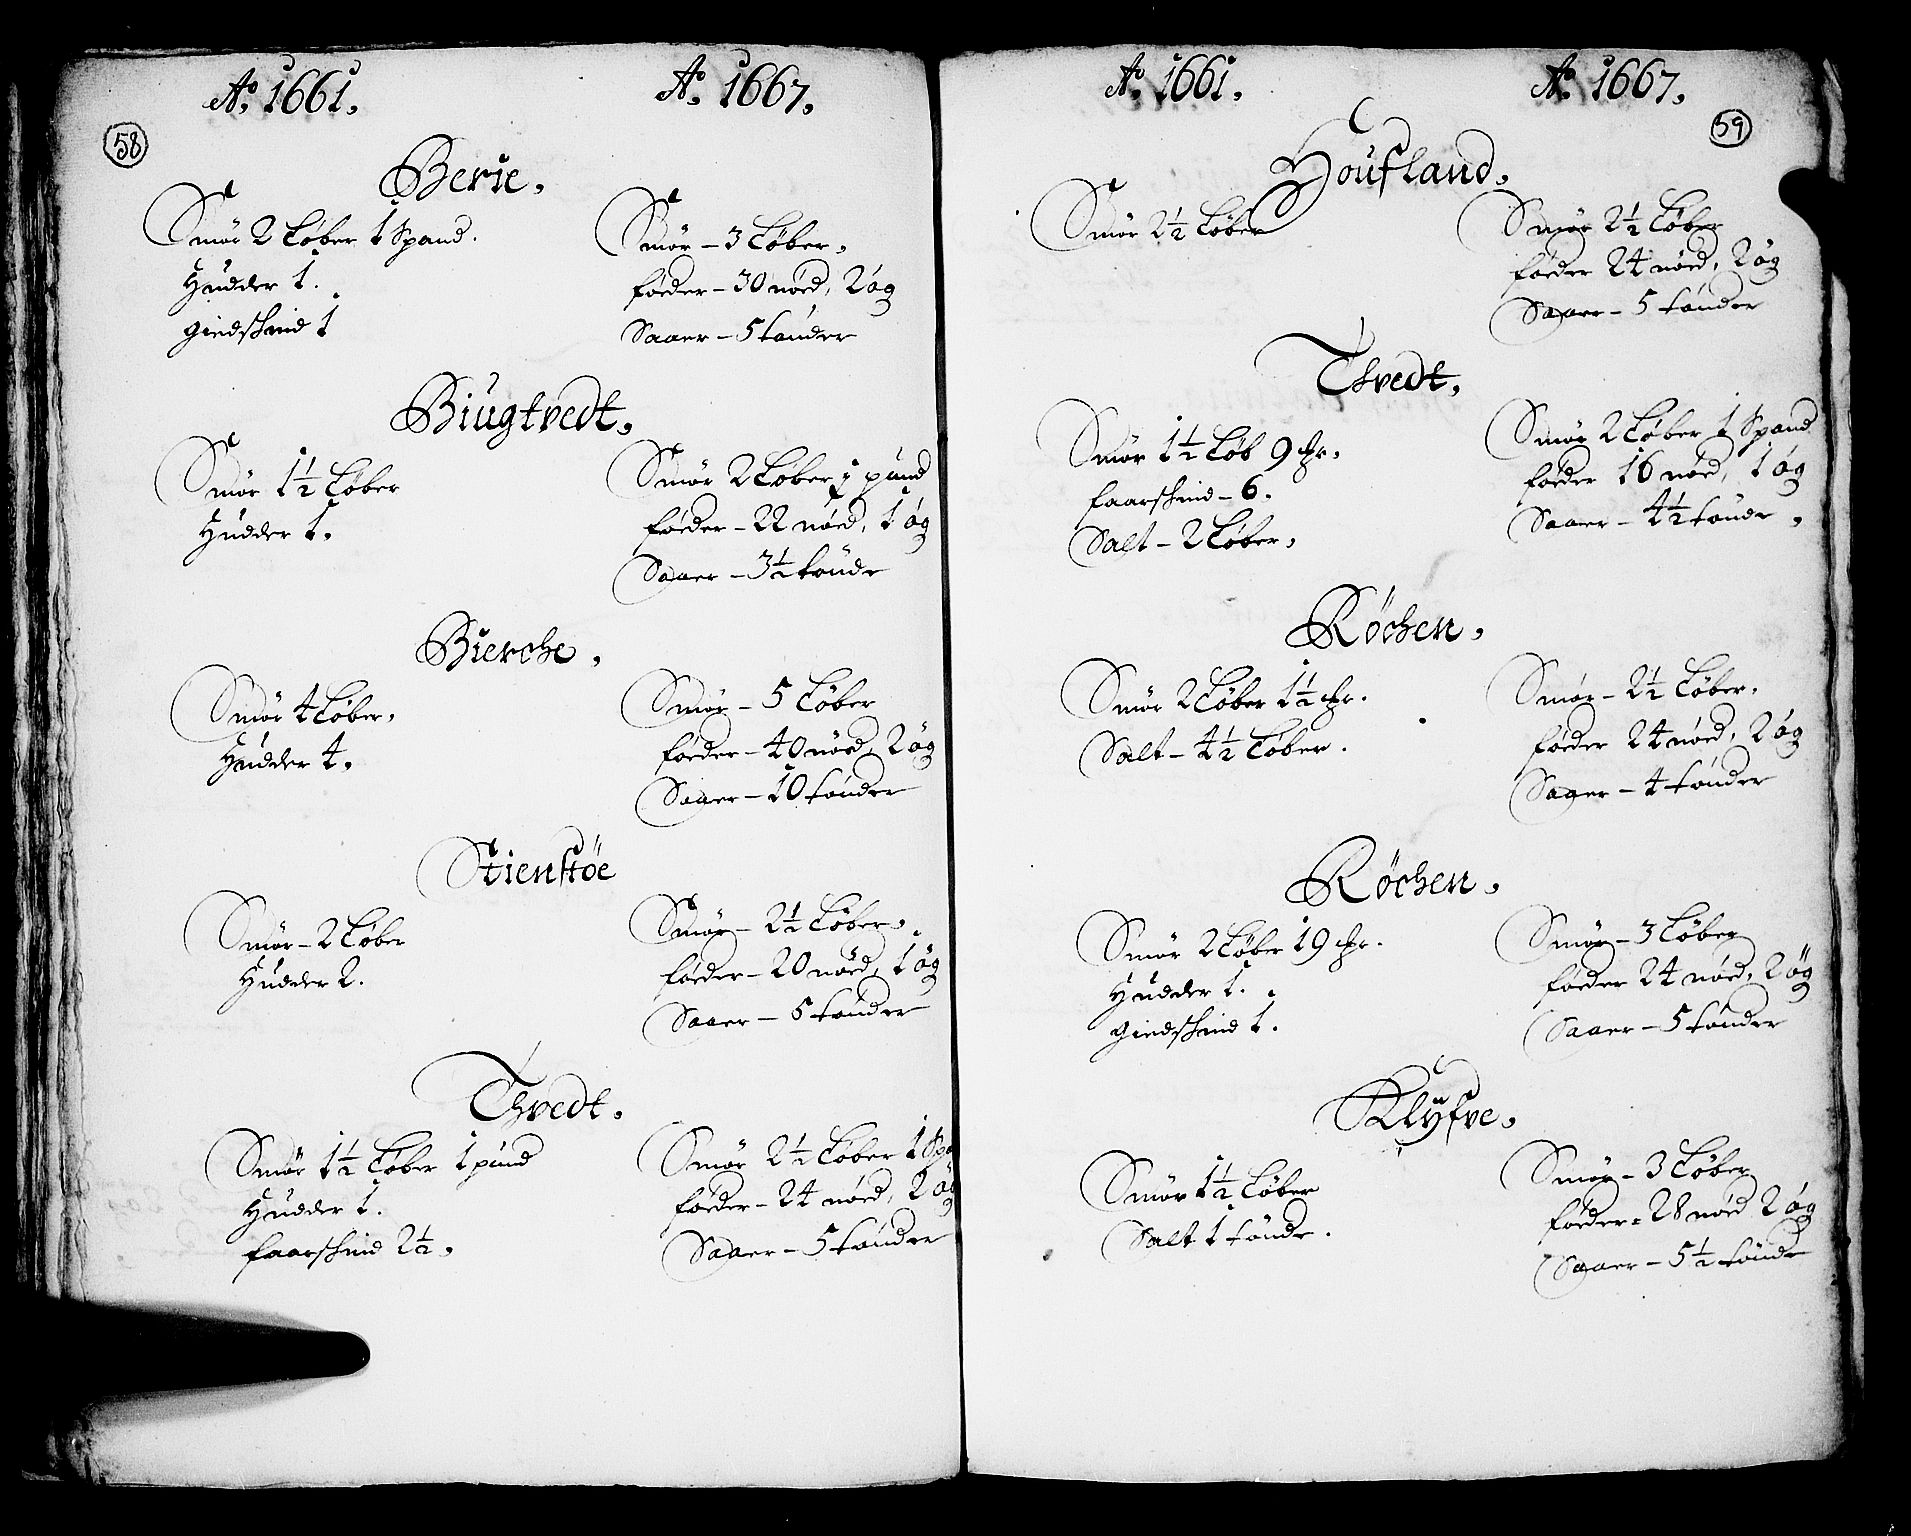 Aº. 1661. Aº. 1667.
58
Berie.
Smör 2 Löber 1 Spand.
Hudder 1.
giedskind 1
Smör - 3 Löber.
føeder - 30 nöed, 2 øg
Saaer - 5 tønder
Biugtvedt.
Smör 1½ Löber
Hudder 1.
Smör 2 Löber j pund
føeder - 22 nöed, 1 øg
Saaer - 3½ tönde
Bierche.
Smör 4 Löber.
Hudder 4.
Smör - 5 Löber
føeder - 40 nöed, 2 øg
Saaer - 10 tønder
Stienstöe
Smör - 2 Löber
Hudder 2.
Smör - 2½ Löber.
føeder - 20 nöed, 1 øg
Saaer - 5 tønder
Thvedt.
Smör 1½ Löber 1 pund
Hudder 1.
faarskind 2½.
Smör 2½ Löber 1 Spa
føeder - 24 nöed, 2 øg
Saaer - 5 tønder
Aº. 1661. Aº. 1667.
59
Houfland.
Smör 2½ Löber
Smör 2½ Löber
føeder 24 nöed, 2 øg
Saaer - 5 tønder
Thvedt.
Smör 1½ Löb 9 mr.
faarskind - 6.
Salt - 2 Löber.
Smör 2 Löber 1 Spand
føeder 16 nöed, 1 øg
Saaer - 4½ tønde.
Röchen.
Smör 2 Löber 1½ mr.
Salt - 4½ Löber.
Smör - 2½ Löber.
føeder 24 nöed, 2 øg
Saaer - 4 tønder
Röchen.
Smör 2 Löber 19 mr.
Hudder 1.
giedskind 1.
Smör - 3 Löber
føeder 24 nöed, 2 øg
Saaer - 5 tønder
Klÿfve.
Smör 1½ Löber
Salt 1 tønde.
Smör - 3 Löber
føeder = 28 nöed 2 øg
Saaer - 5½ tønde